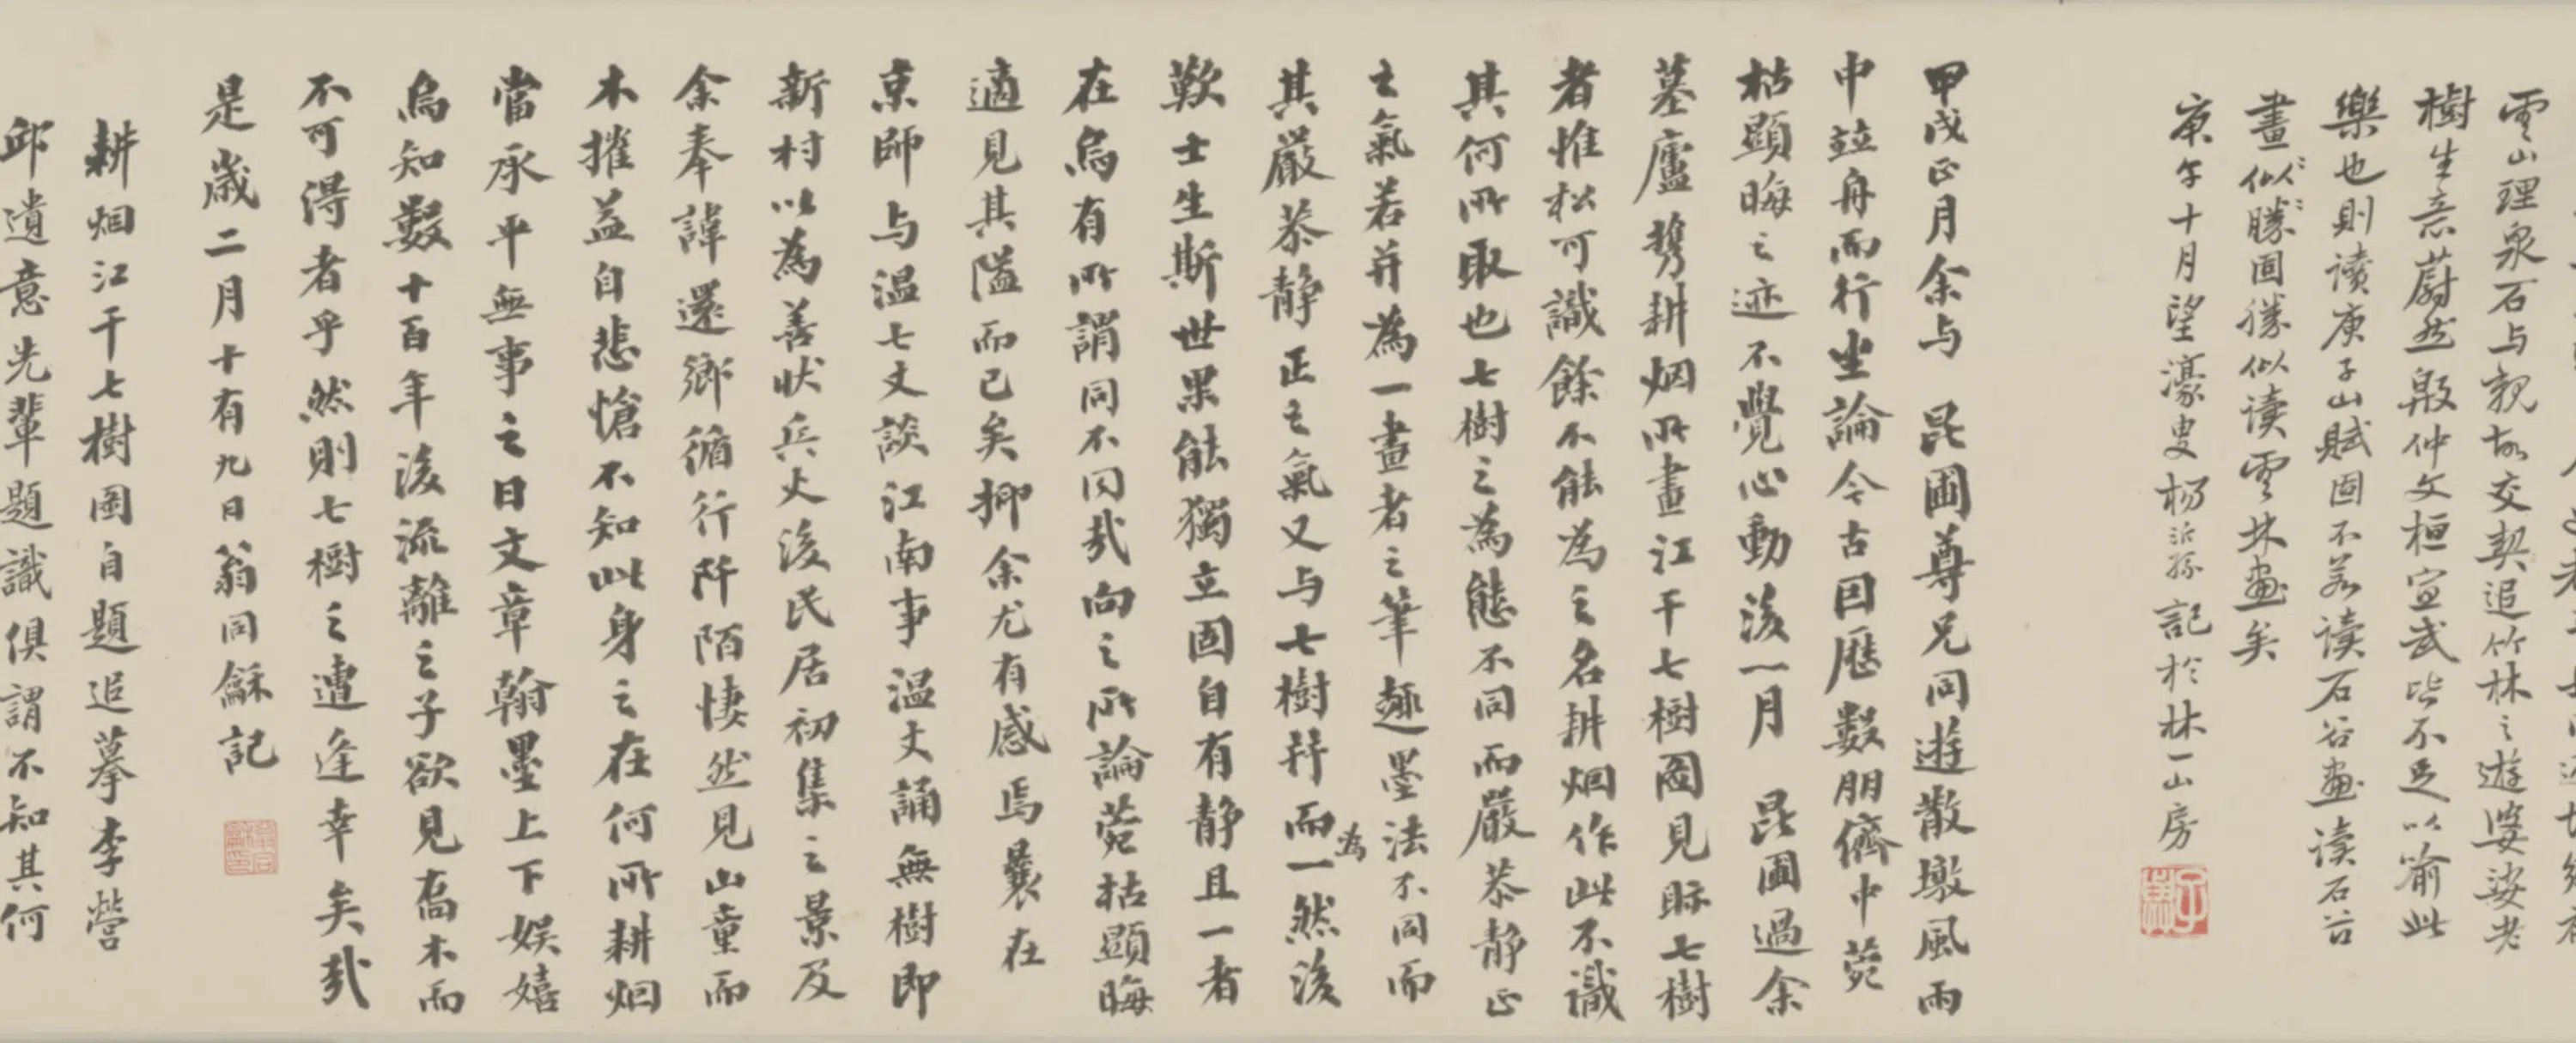 雲山理泉石与親故交契追竹林之遊婆娑老
樹生意蔚然殷仲文桓宣武皆不足以喻此
樂也則讀庾子山賦固不若读石谷画读石谷
畫似勝固勝似读雲林画矣
庚午十月望濠叟楊沂孫記於林一山房
甲戌正月余与 昆圃尊兄同遊散墩風雨
中竝舟而行坐論今古因歷數朋儕中菀
枯顯晦之迹不覺心動後一月 昆圃過余
墓廬携耕烟所畫江干七樹圖見眎七樹
者惟松可識餘不能為之名耕烟作此不識
其何所取也七樹之為態不同而嚴恭静正
之氣若并為一畫者之筆趣墨法不同而
其嚴恭静正之氣又与七樹并而為一然後
歎士生斯世果能獨立固自有静且一者
在烏有所謂同不同哉向之所論菀枯顯晦
適見其隘而已矣抑余尤有感焉曩在
京師与温七丈談江南事温丈誦無樹即
新村以為善狀兵火後民居初集之景及
余奉諱還鄉循行阡陌悽然見山童而
木摧益自悲愴不知此身之在何所耕烟
當承平無事之日文章翰墨上下娱嬉
烏知數十百年後流離之子欲見喬木而
不可得者乎然則七樹之遭逢幸矣哉
是歲二月十有九日翁同龢記
耕烟江干七樹圖自題追摹李營
邱遺意先輩題識俱謂不知其何